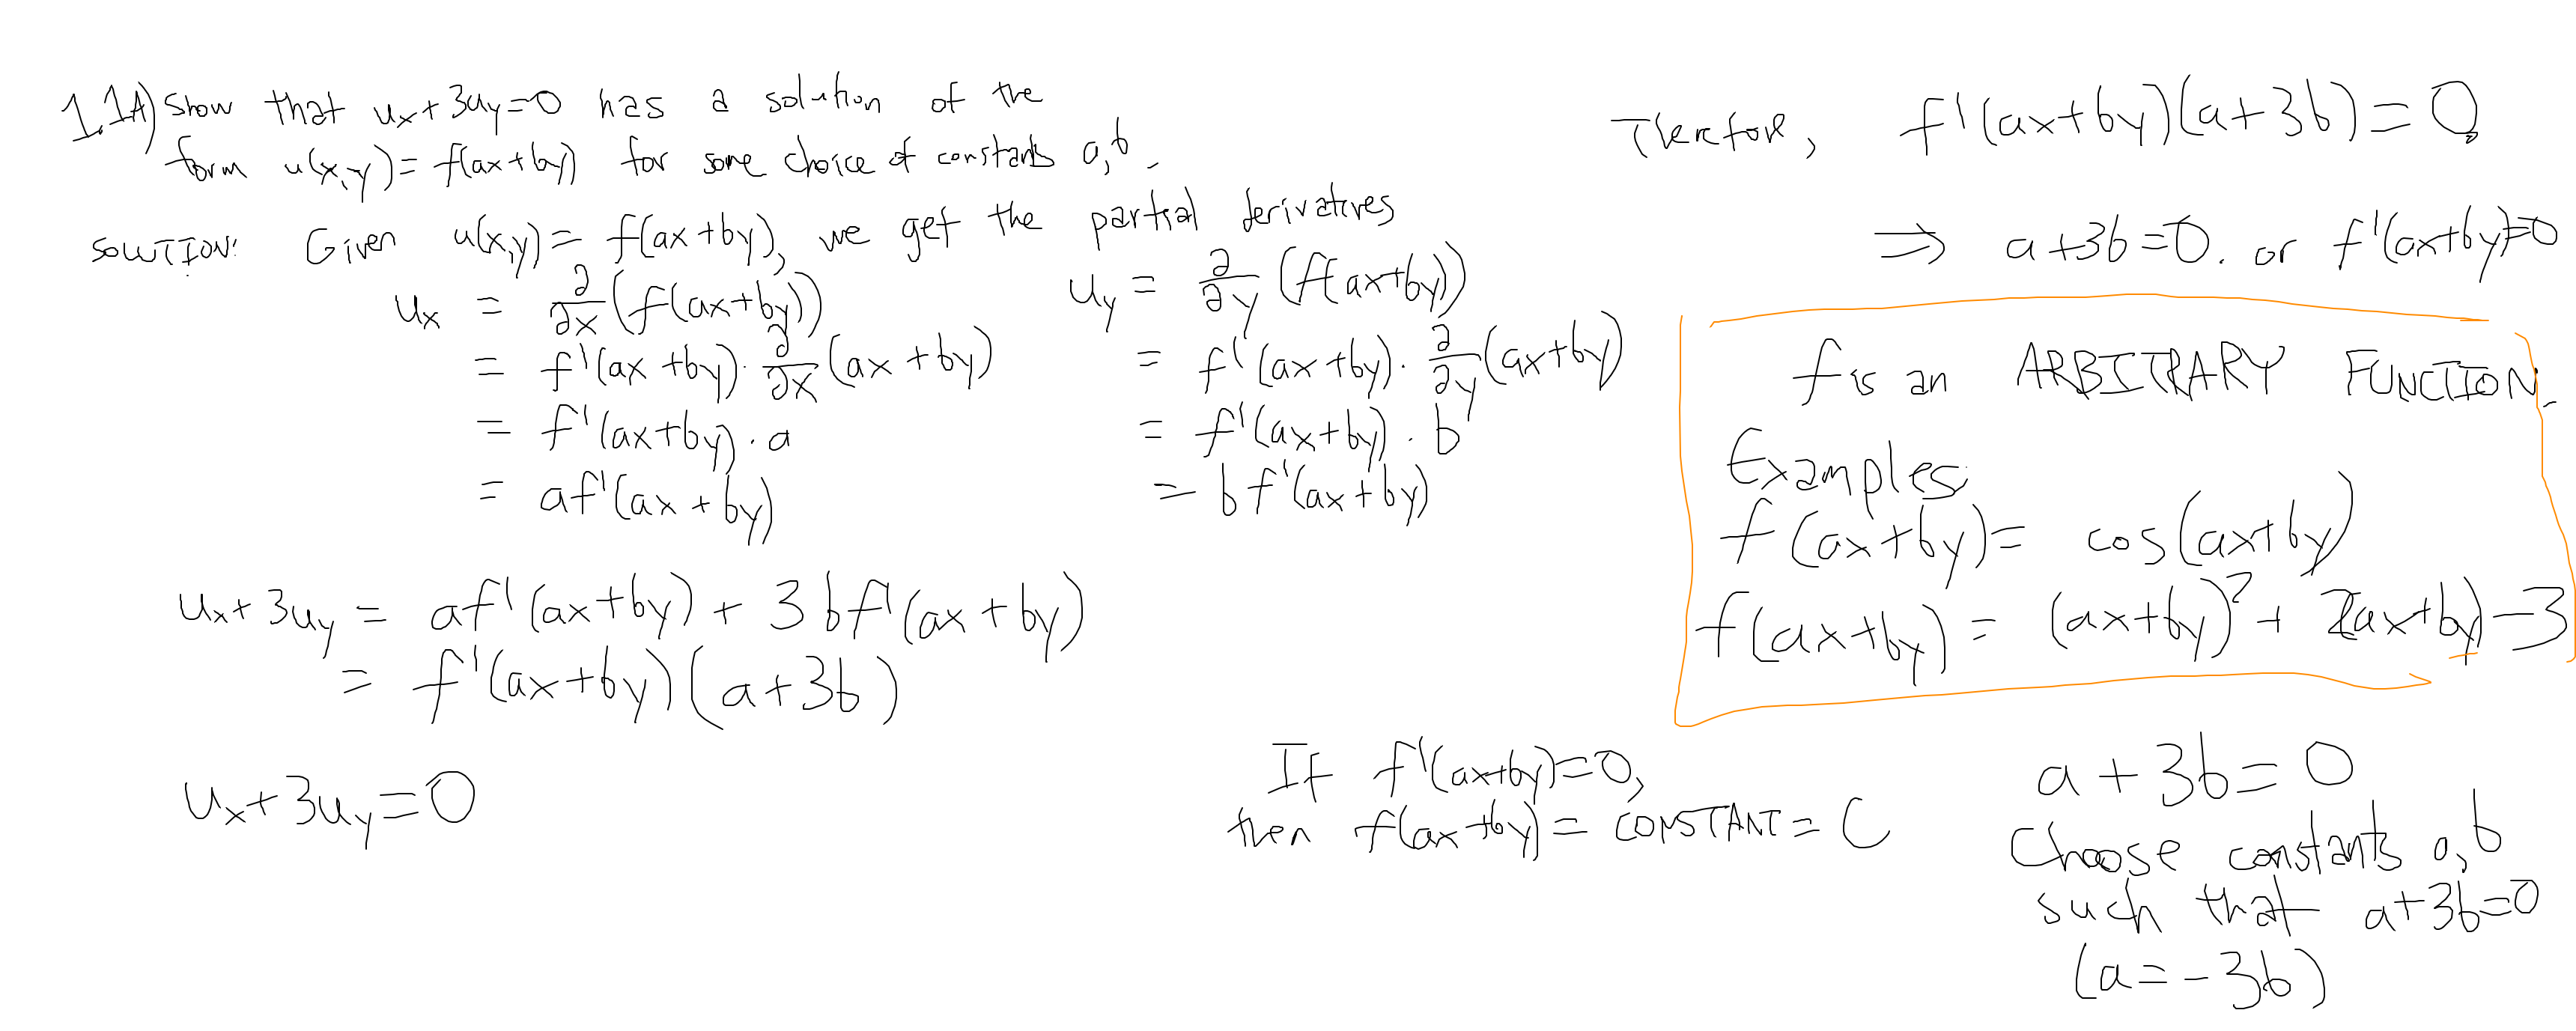 1.1A) Show that u_x+3u_y=0 has a solution of the
form u(x,y)=f(ax+by) for some choice of constants a,b.
SOLUTION: Given u(x,y)=f(ax+by), we get the partial derivatives
u_x = ∂/∂x (f(ax+by))
= f'(ax+by)·∂/∂x(ax+by)
= f'(ax+by)·a
= af'(ax+by)
u_y = ∂/∂y (f(ax+by))
= f'(ax+by)·∂/∂y(ax+by)
= f'(ax+by)·b
= bf'(ax+by)
u_x+3u_y = af'(ax+by)+3bf'(ax+by)
= f'(ax+by)(a+3b)
u_x+3u_y=0
Therefore, f'(ax+by)(a+3b)=0.
⇒ a+3b=0. or f'(ax+by)=0
f is an ARBITRARY FUNCTION.
Examples:
f(ax+by)= cos(ax+by)
f(ax+by)= (ax+by)²+2(ax+by)-3
If f'(ax+by)=0,
then f(ax+by)= CONSTANT = C
a+3b=0
Choose constants a,b
such that a+3b=0
(a=-3b)